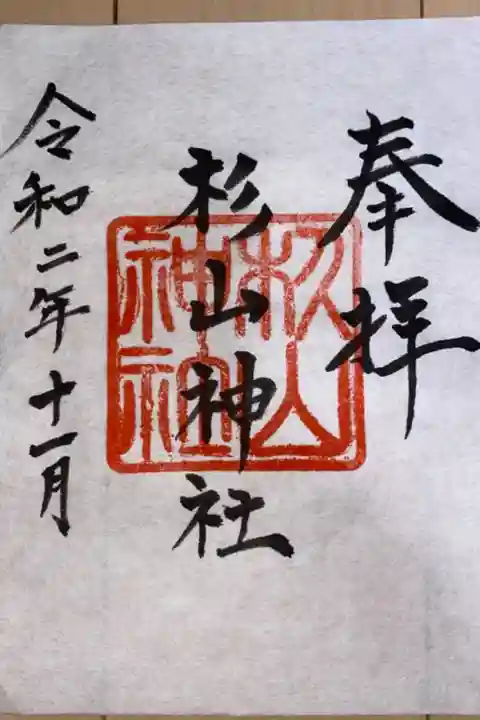 奉拝
杉山神社
杉山
神社
令和二年十一月